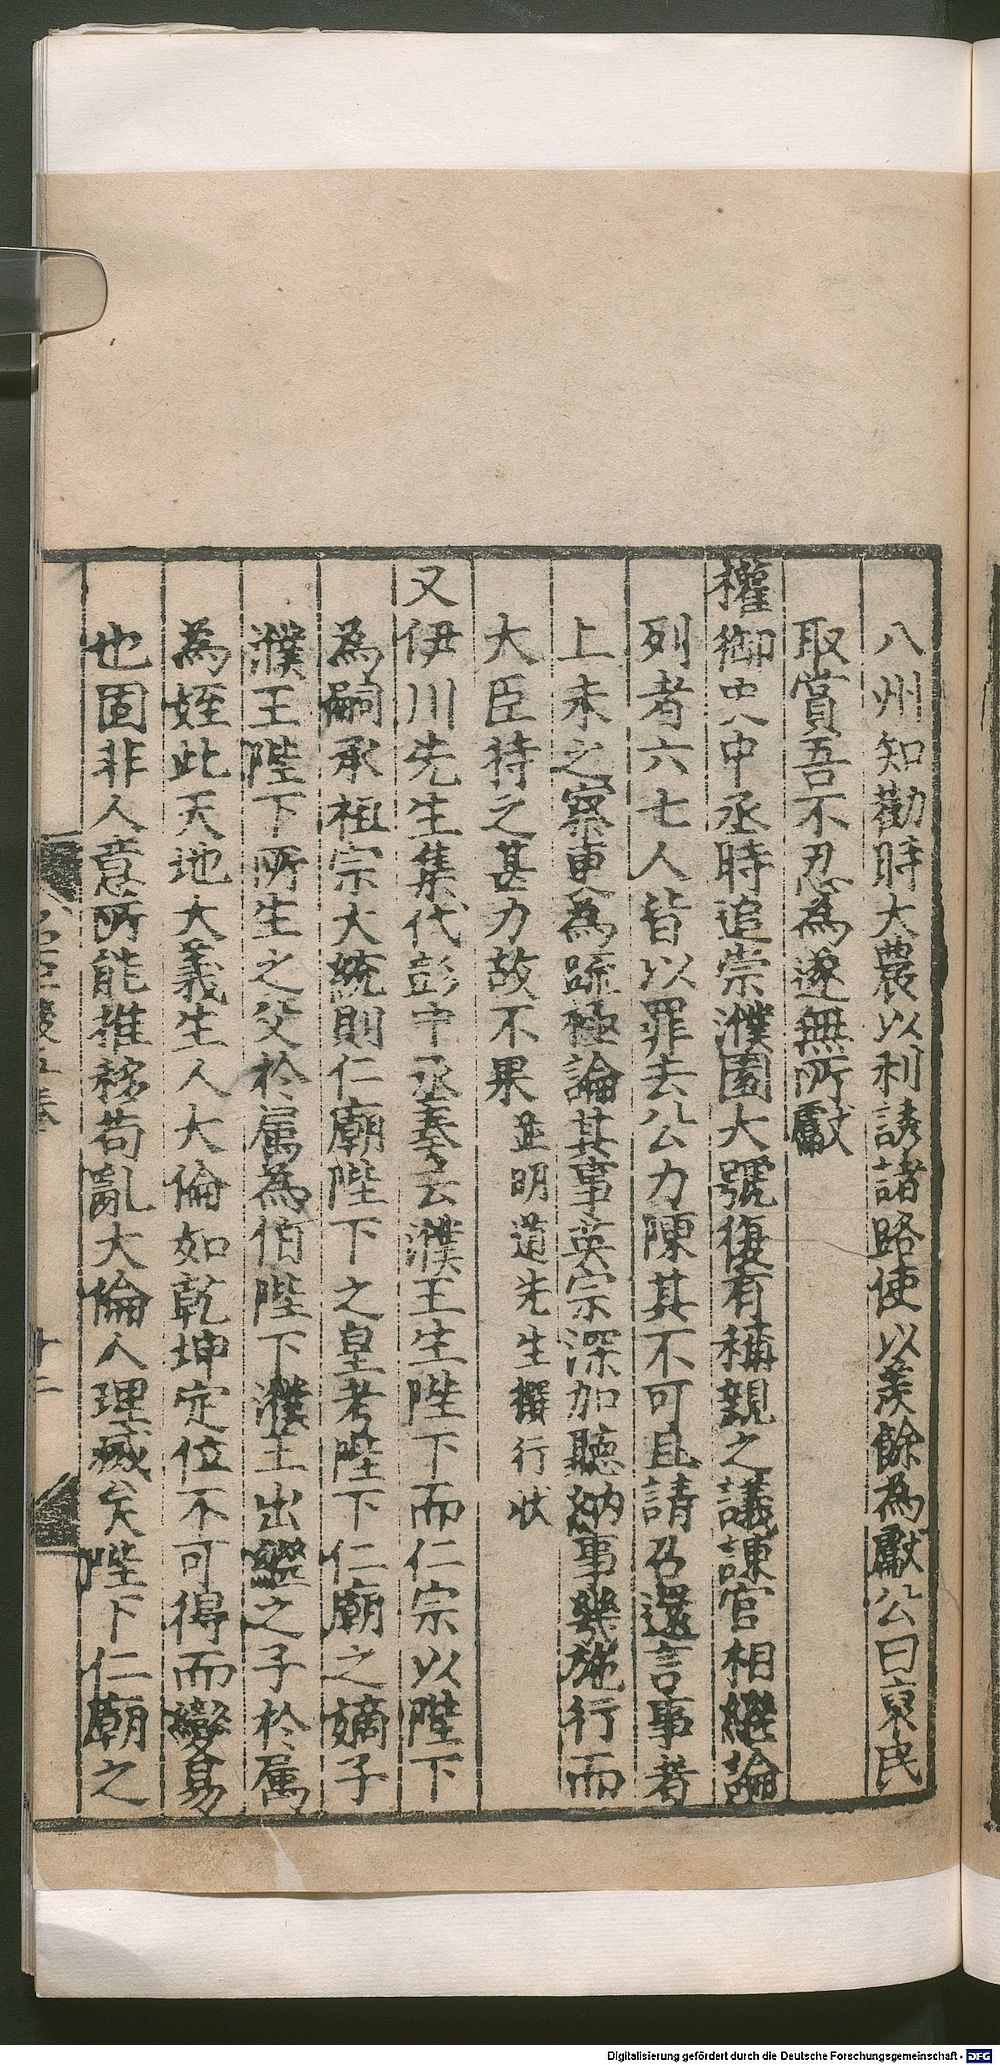 八州知勸時大農以利誘諸路使以羨餘為獻公曰裒民
取賞吾不忍為遂無所獻
權御史中丞時追崇濮園大號復有稱親之議諫官相繼論
列者六七人皆以罪去公力陳其不可且請召還言事者
上未之察更為疏極論其事英宗深加聽納事幾施行而
大臣持之甚力故不果並明道先生撰行狀
又伊川先生集代彭中丞奏云濮王生陛下而仁宗以陛下
為嗣承祖宗大統則仁廟陛下之皇考陛下仁廟之嫡子
濮王陛下所生之父於属為伯陛下濮王出繼之子於属
為姪此天地大義生人大倫如乾坤定位不可得而變易
也固非人意所能推移苟亂大倫人理滅矣陛下仁廟之
名臣 五 十二
Digitalisierung gefördert durch die Deutsche Forschungsgemeinschaft - DFG